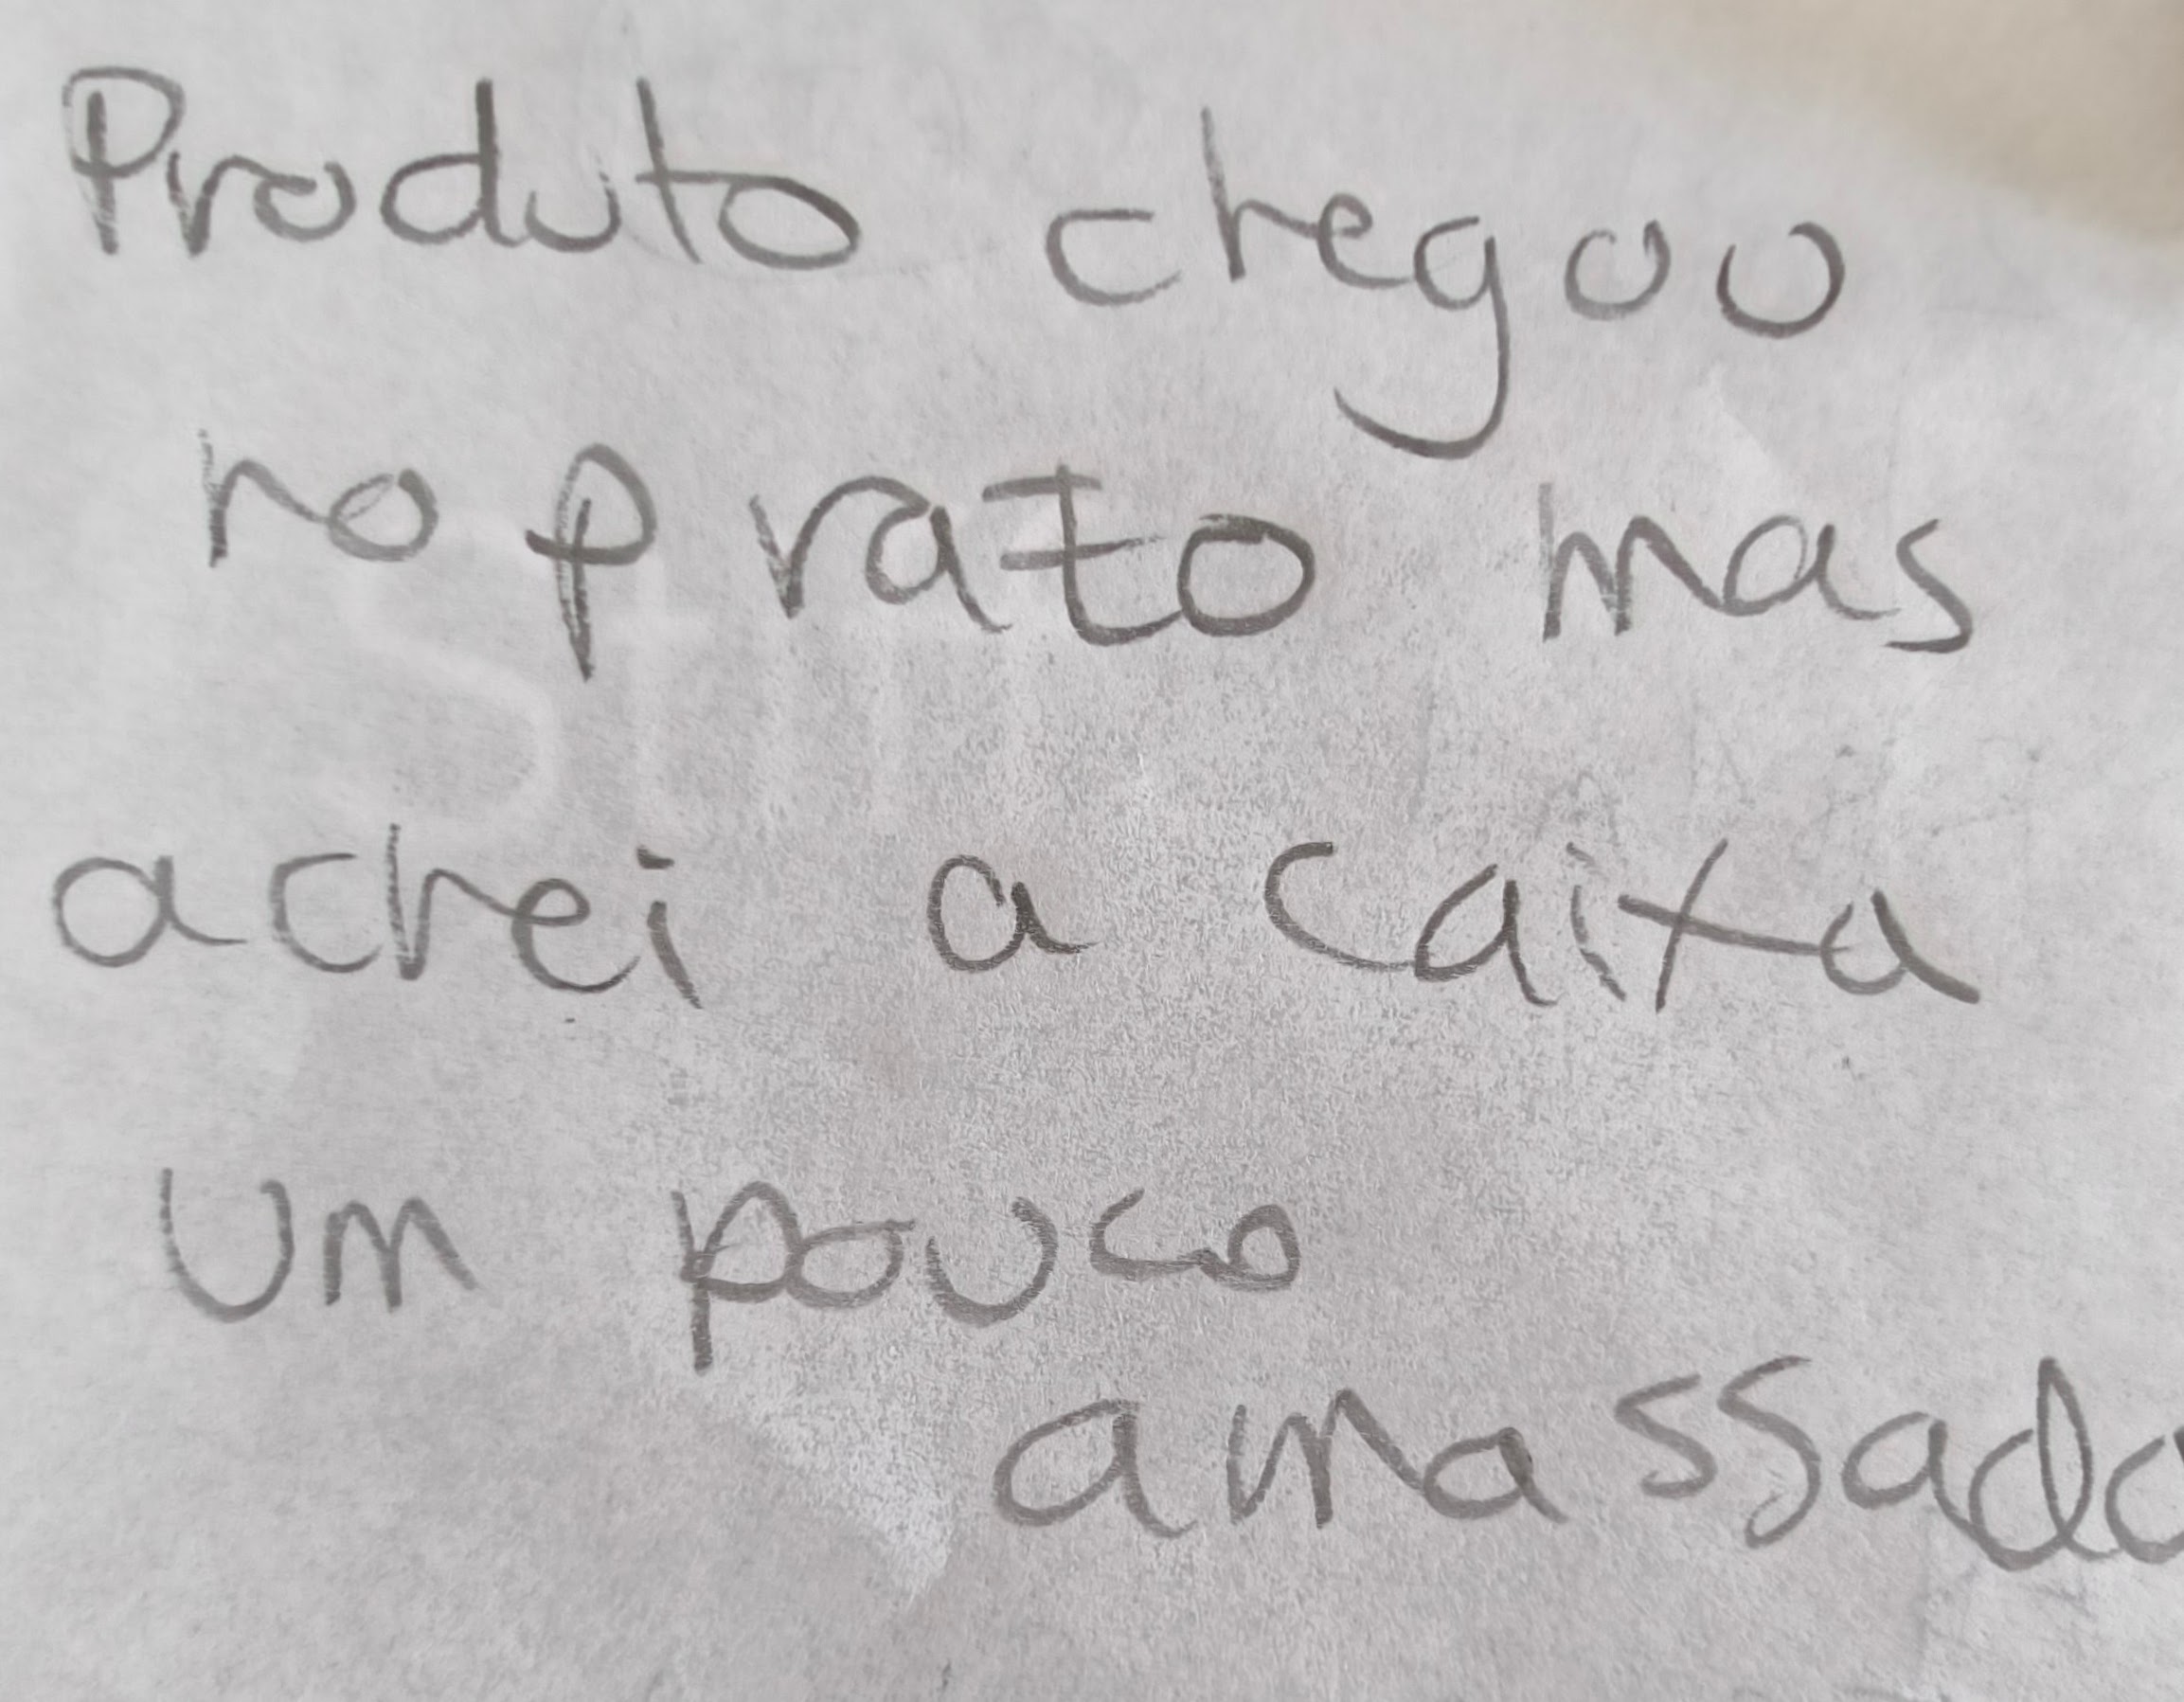 Produto chegou
no prazo mas
achei a caixa
um pouco
amassado